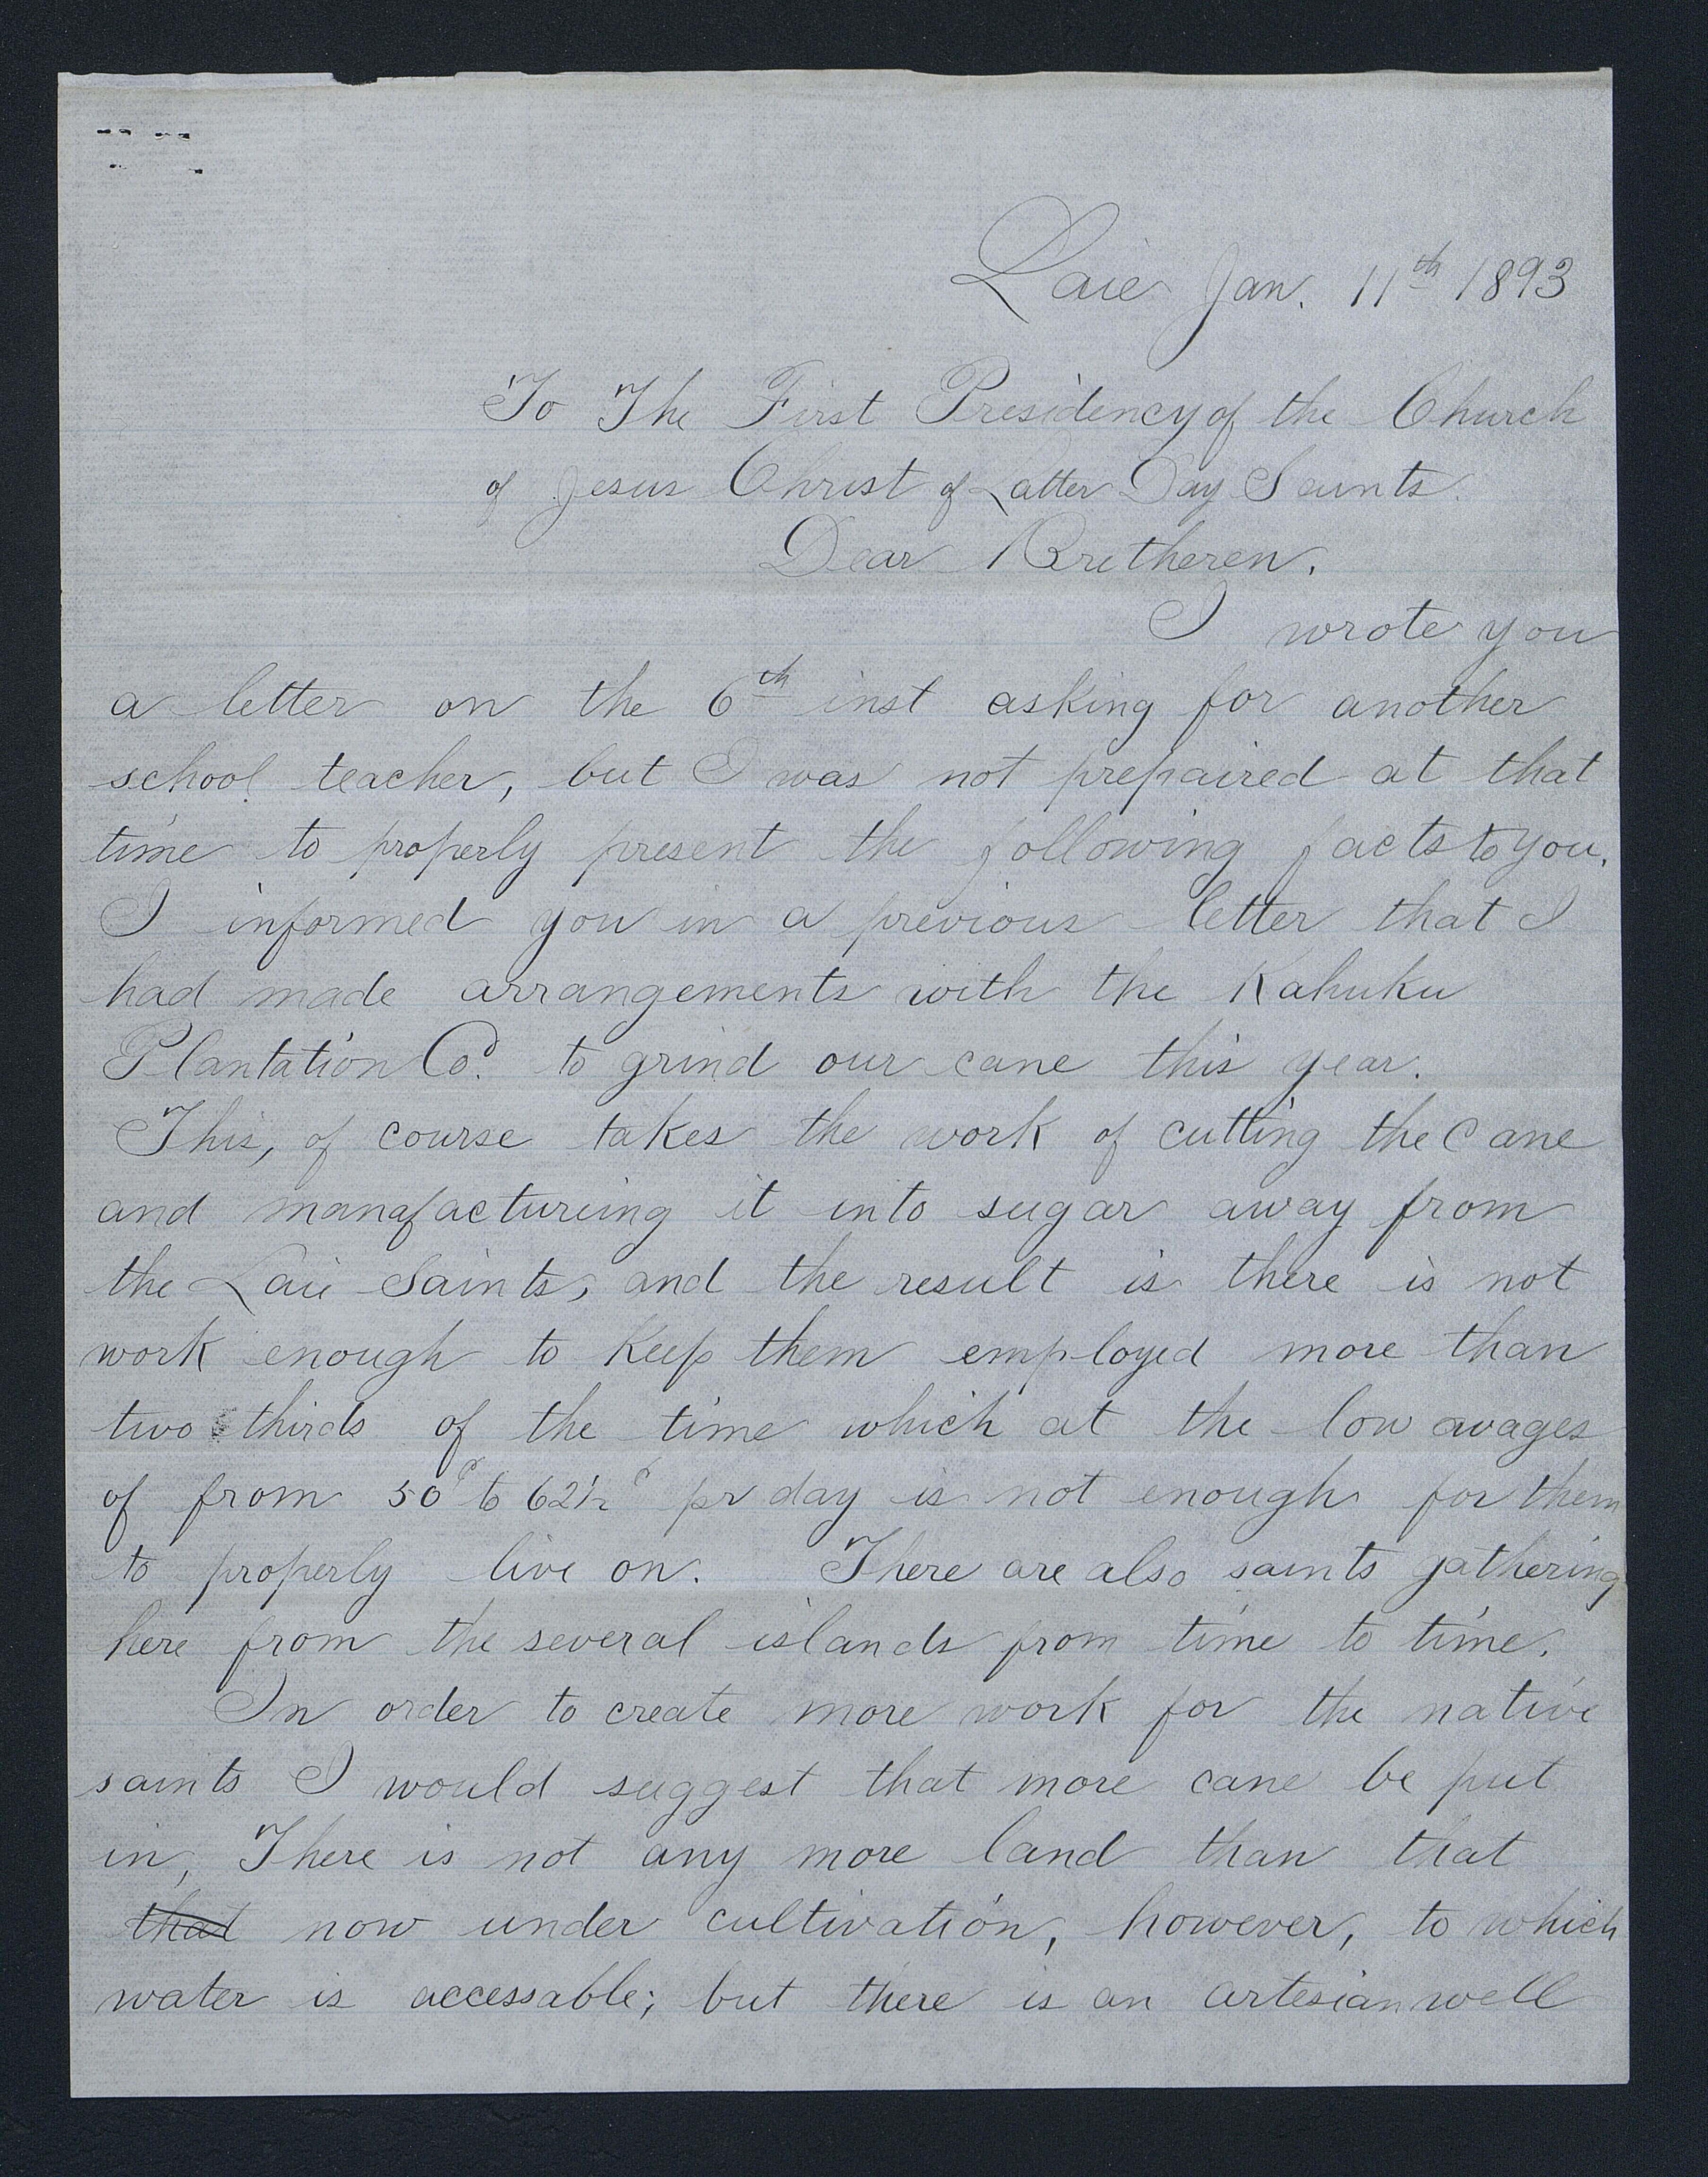 Laie Jan. 11th 1893
To The First Presidency of the Church
of Jesus Christ of Latter Day Saints.
Dear Bretheren.
I wrote you
a letter on the 6th inst asking for another
school teacher, but I was not prepaired at that
time to properly present the following facts to you.
I informed you in a previous letter that I
had made arrangements with the Kahuku
Plantation Co. to grind our cane this year.
This, of course takes the work of cutting the Cane
and manafacturing it into sugar away from
the Laie Saints, and the result is there is not
work enough to Keep them employed more than
two thirds of the time which at the low wages
of from 50¢ to 62½¢ pr day is not enough for them
to properly live on. There are also saints gathering
here from the several islands from time to time.
In order to create more work for the native
saints I would suggest that more cane be put
in, There is not any more land than that
that now under cultivation, however, to which
water is accessable; but there is an artesian well